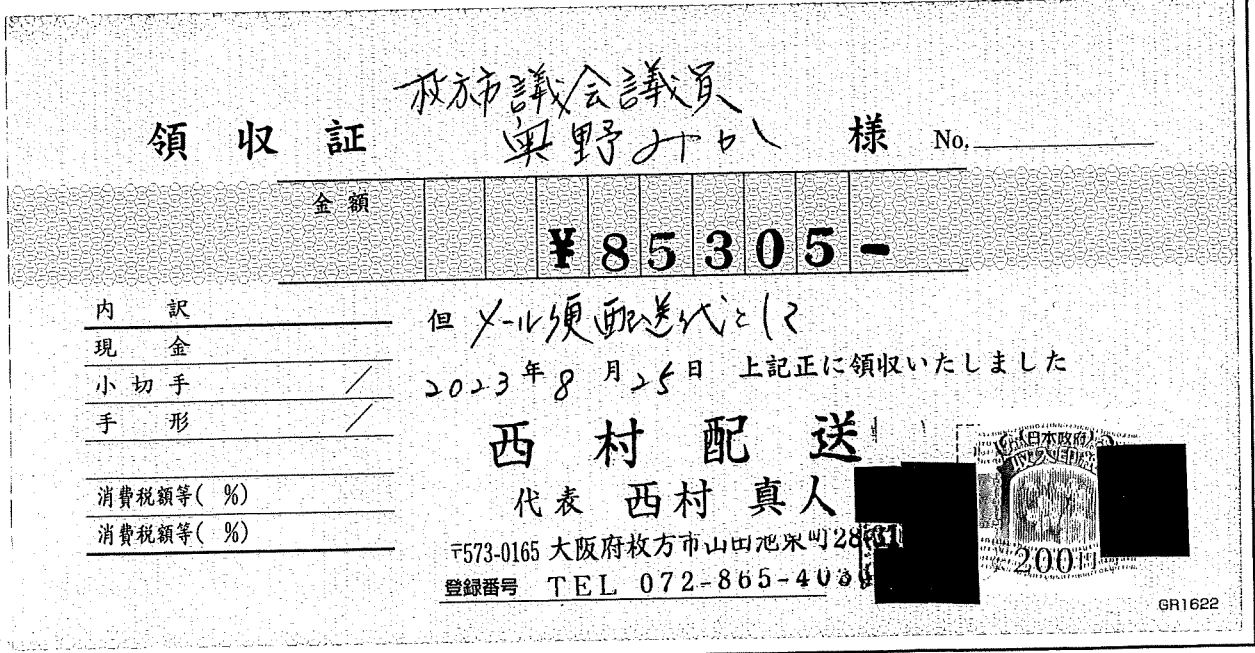 枚方市議会議員
領収証 奥野みか 様 No.
金額
¥85305-
内訳
現金
小切手 /
手形 /
消費税額等( %)
消費税額等( %)
但 メール便配送代として
2023年8月25日 上記正に領収いたしました
西村配送
代表 西村真人
〒573-0165 大阪府枚方市山田池東町28
登録番号 TEL 072-865-403
日本政府
収入印紙
200円
GR1622